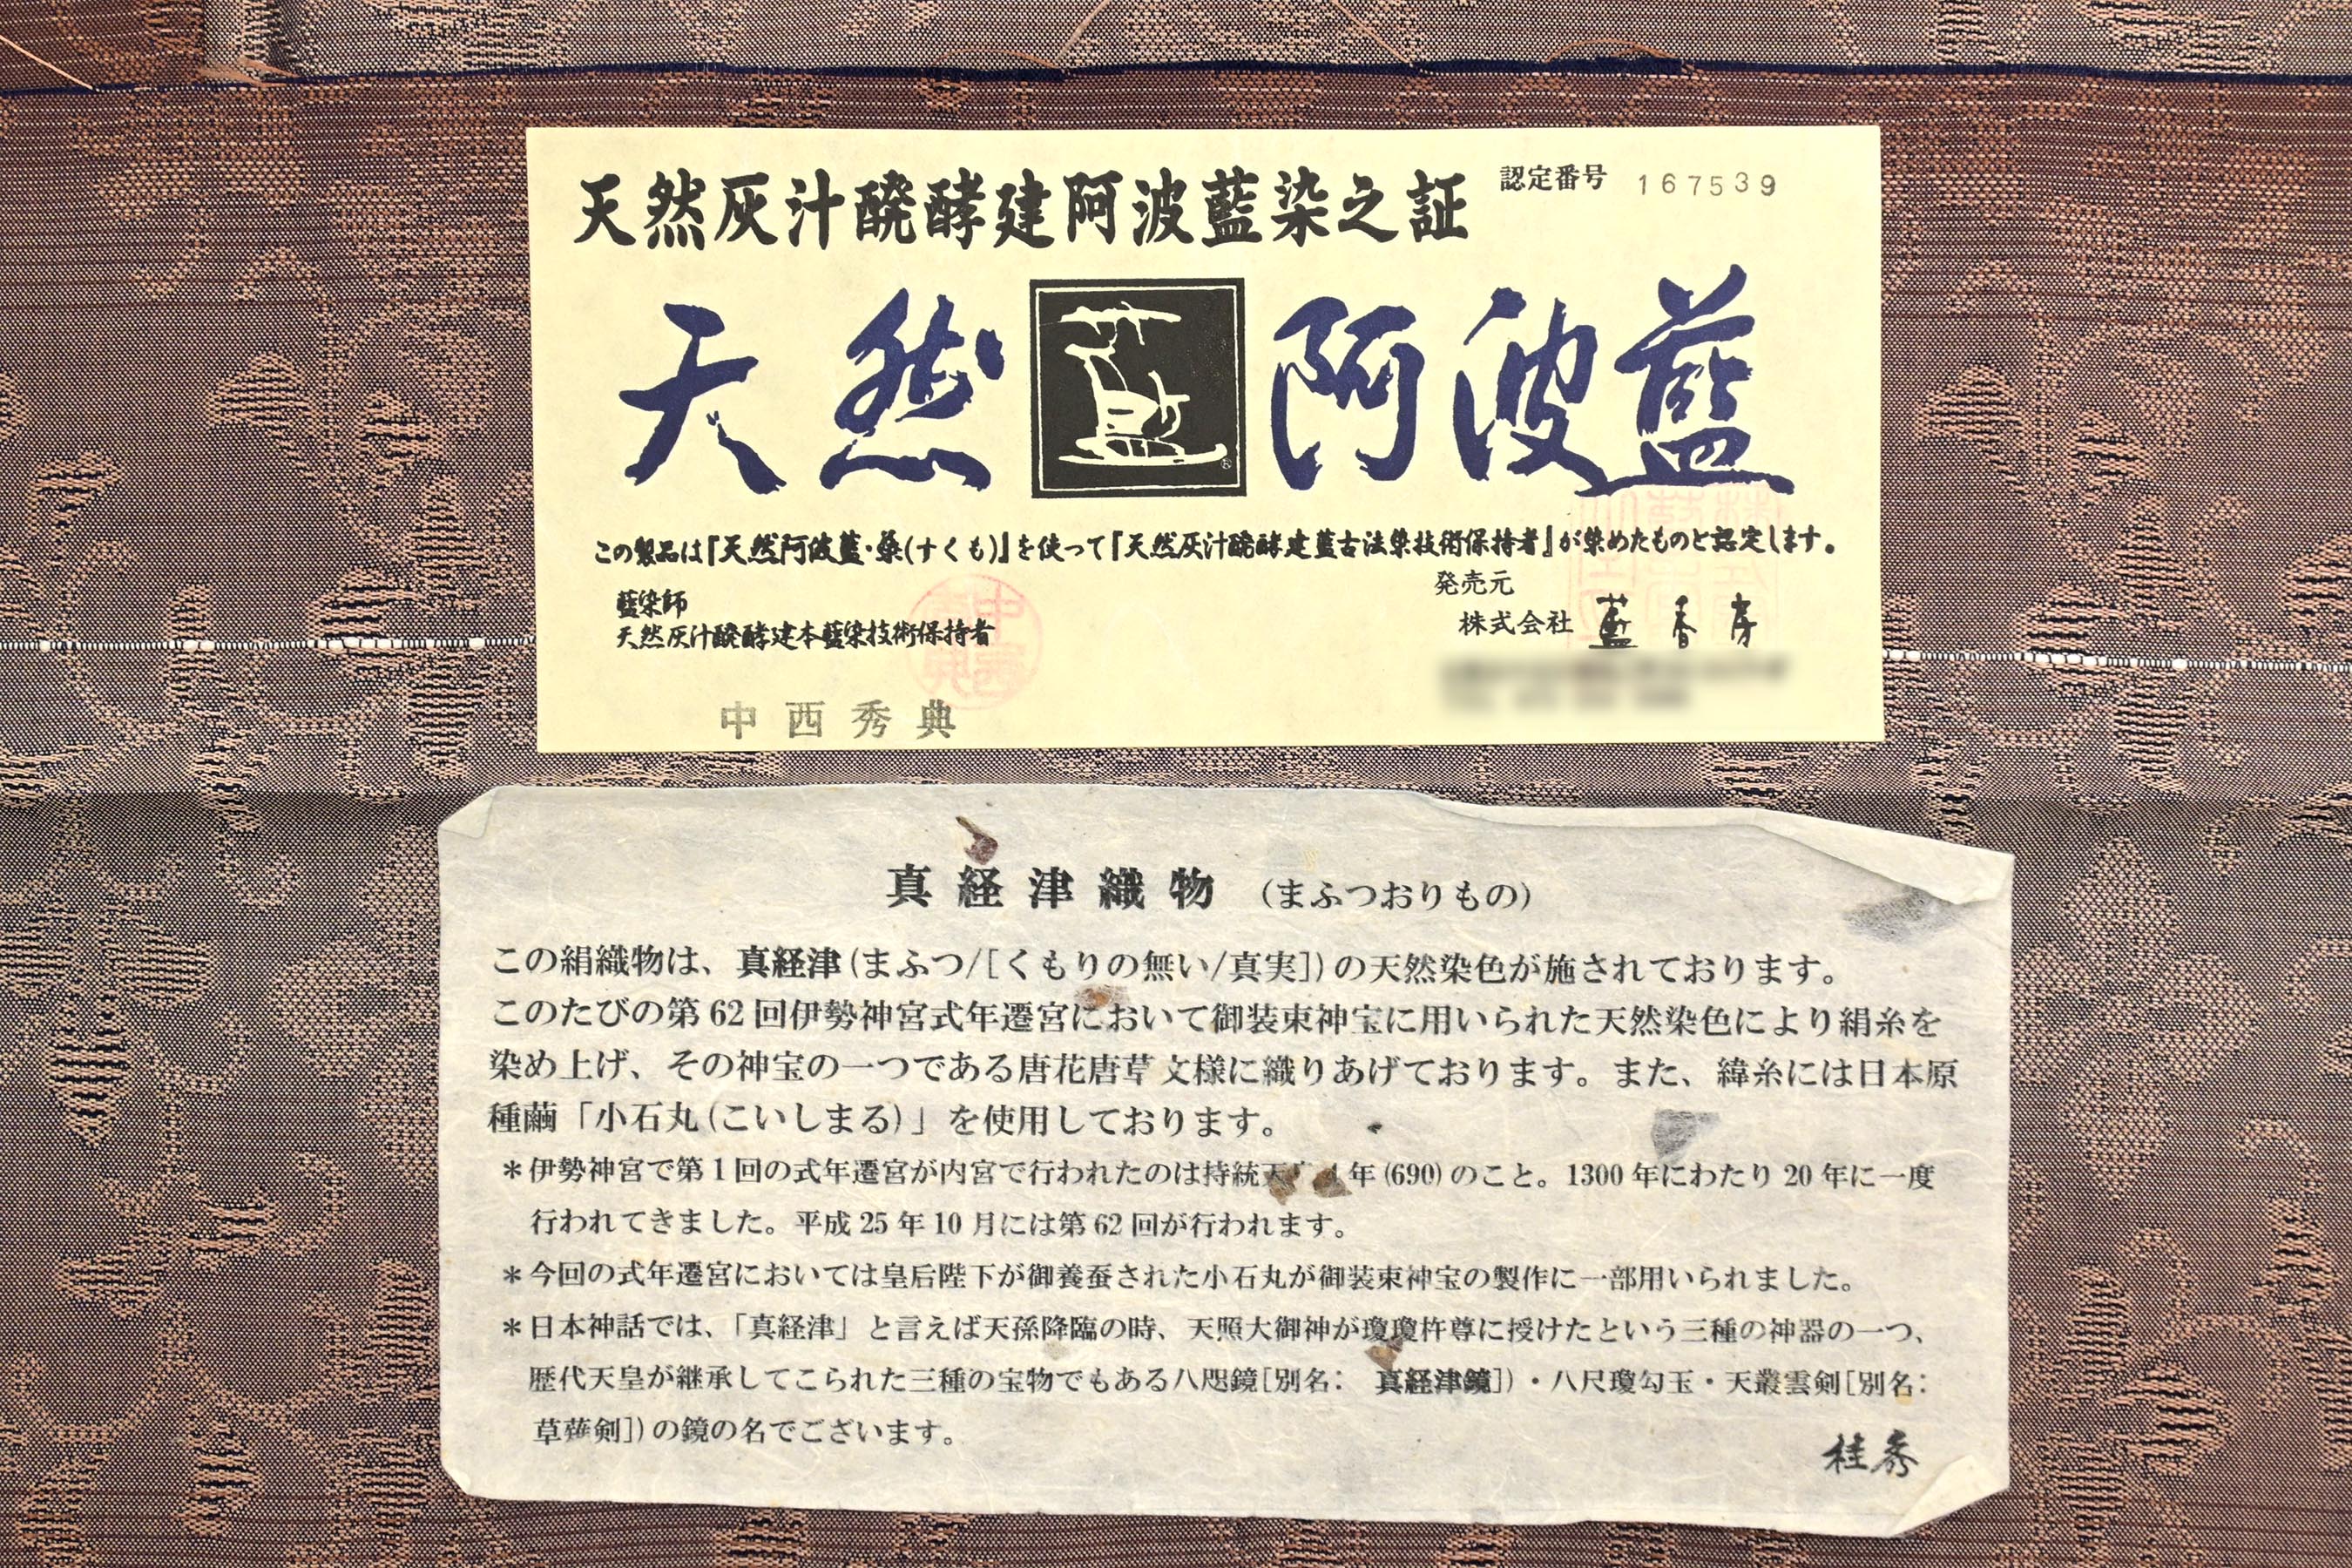 天然灰汁醗酵建阿波藍染之証
認定番号 167539
天然 阿波藍
この製品は『天然阿波藍・蒅(すくも)』を使って『天然灰汁醗酵建藍古法染技術保持者』が染めたものと認定します。
藍染師
天然灰汁醗酵建本藍染技術保持者
中西秀典
発売元
株式会社 藍香房
真経津織物 (まふつおりもの)
この絹織物は、真経津(まふつ/[くもりの無い/真実])の天然染色が施されております。
このたびの第62回伊勢神宮式年遷宮において御装束神宝に用いられた天然染色により絹糸を
染め上げ、その神宝の一つである唐花唐草文様に織りあげております。また、緯糸には日本原
種繭「小石丸(こいしまる)」を使用しております。
*伊勢神宮で第1回の式年遷宮が内宮で行われたのは持統天 年(690)のこと。1300年にわたり20年に一度
行われてきました。平成25年10月には第62回が行われます。
*今回の式年遷宮においては皇后陛下が御養蚕された小石丸が御装束神宝の製作に一部用いられました。
*日本神話では、「真経津」と言えば天孫降臨の時、天照大御神が瓊瓊杵尊に授けたという三種の神器の一つ、
歴代天皇が継承してこられた三種の宝物でもある八咫鏡[別名: 真経津鏡])・八尺瓊勾玉・天叢雲剣[別名:
草薙剣])の鏡の名でございます。
桂秀